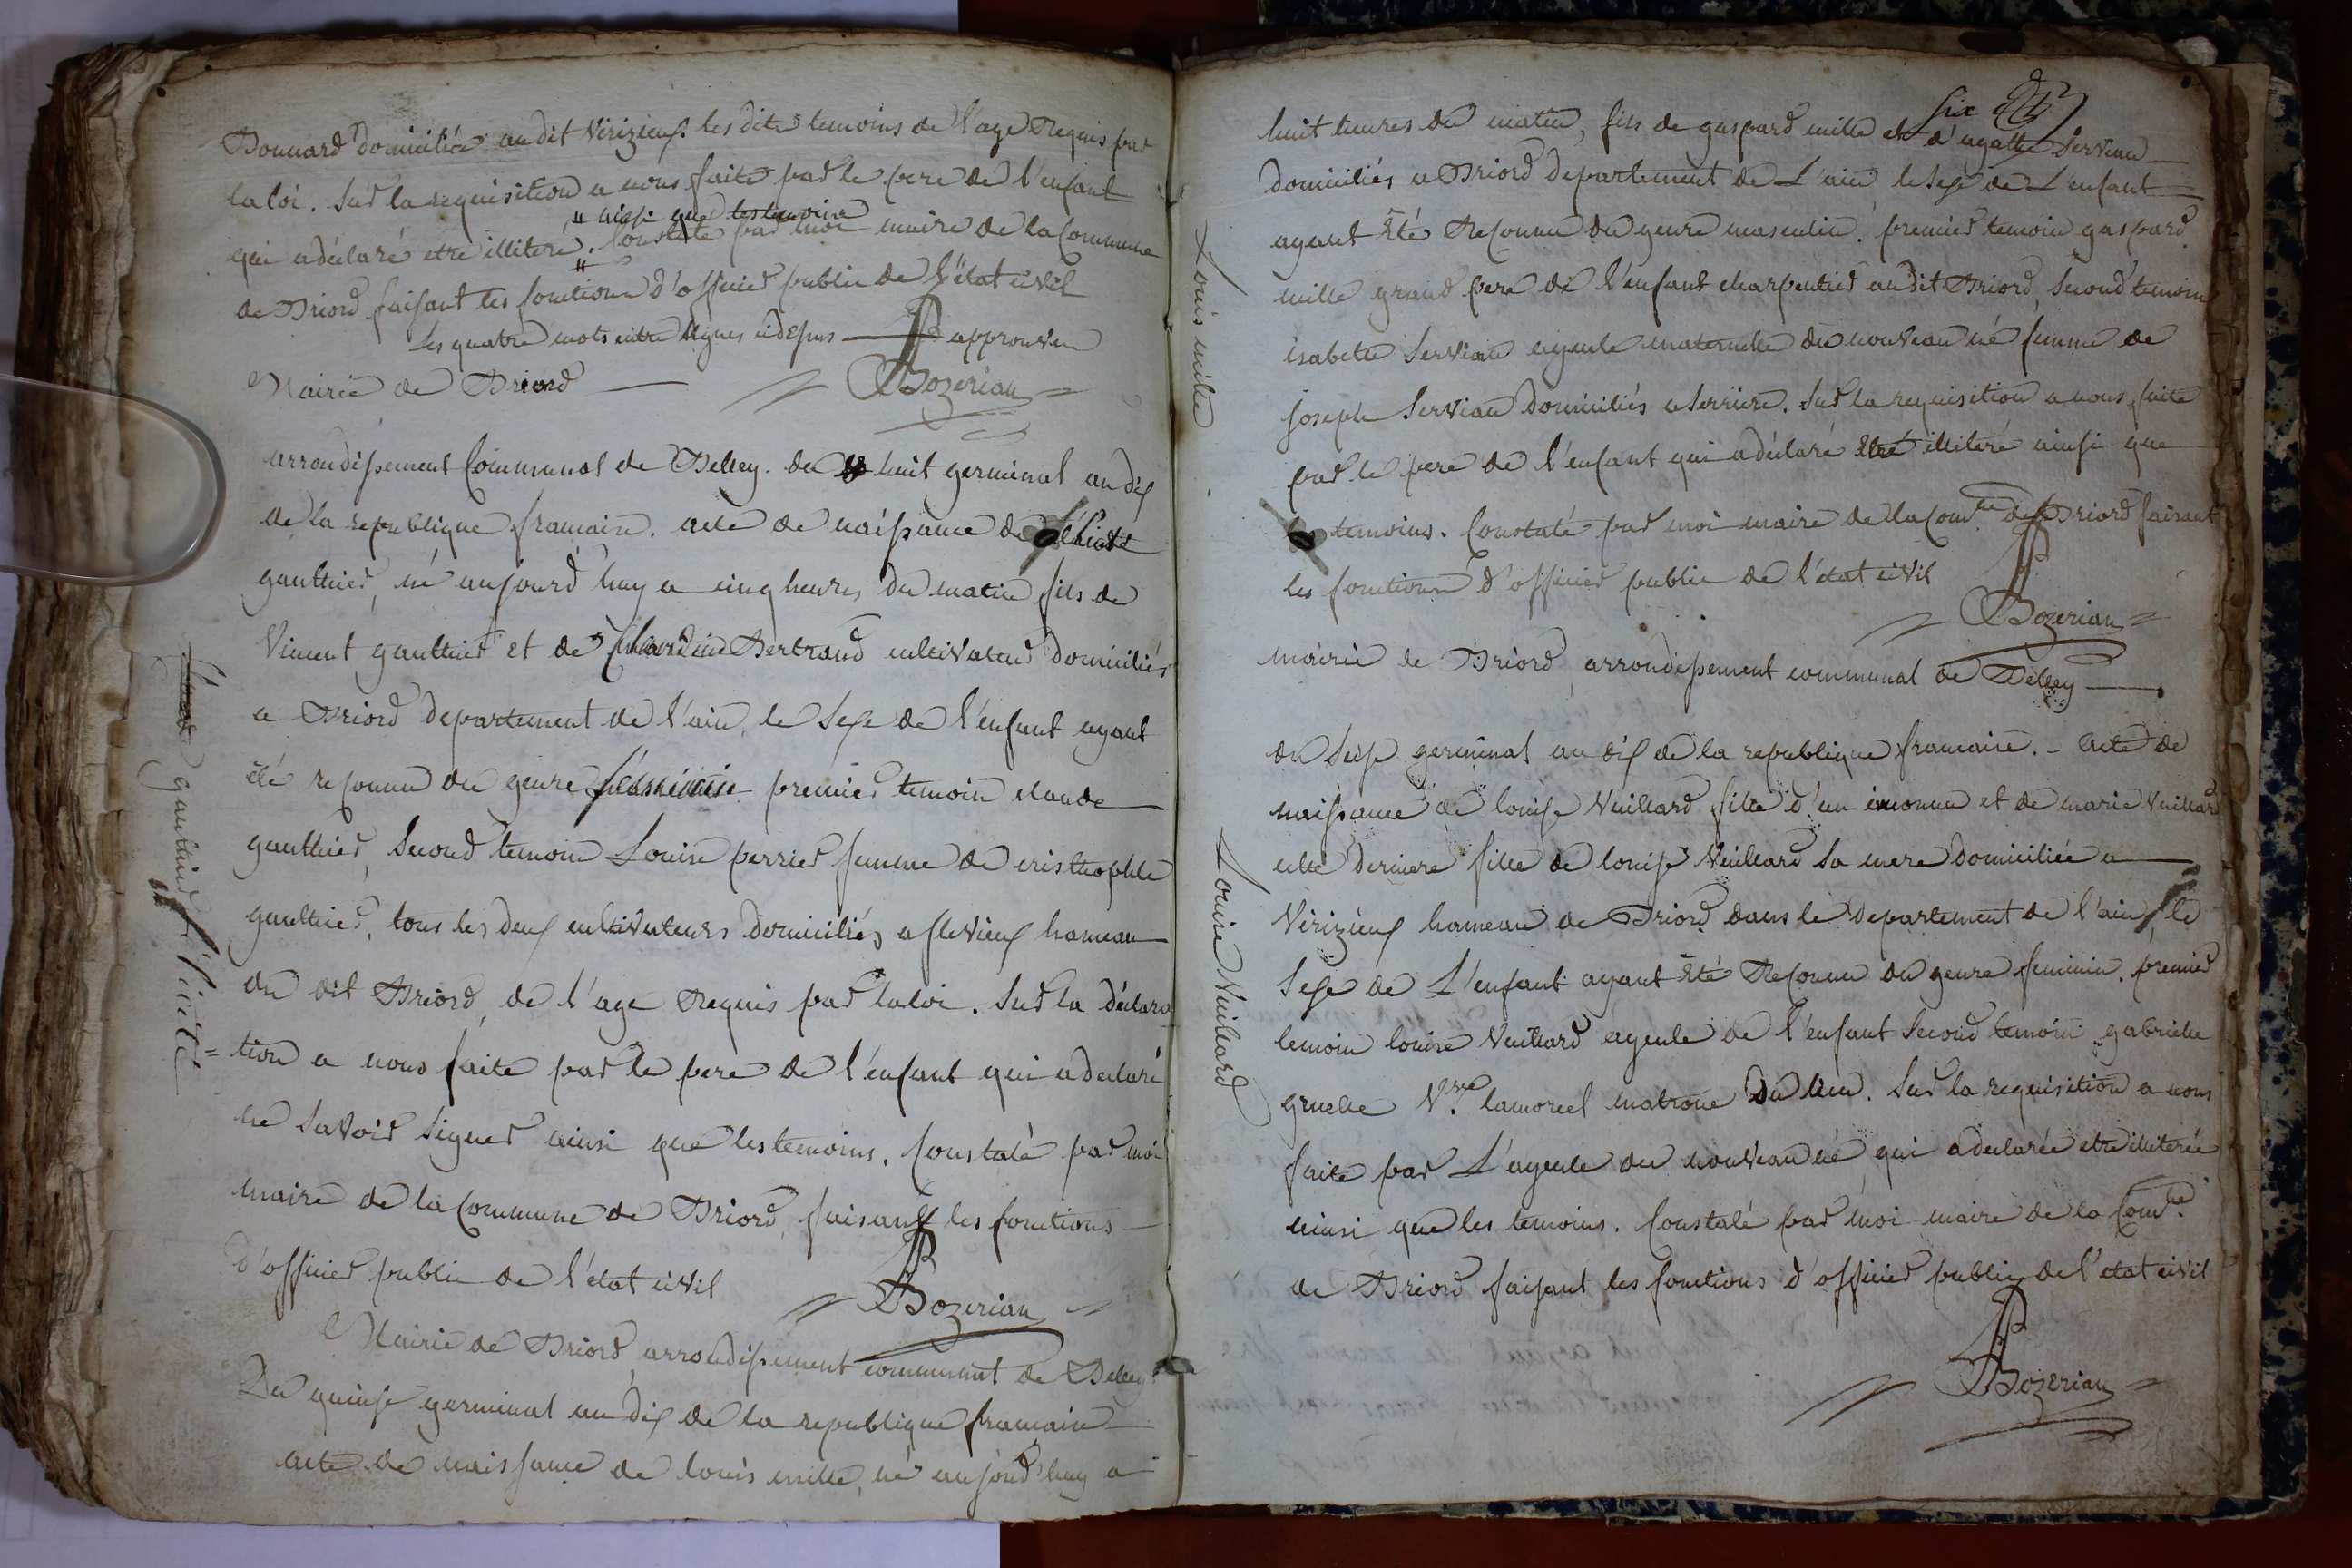 Bonnard domiciliée audit Vérizieux. les dits temoins de l'age Requis par
la loi. Sur la requisition a nous faite par le pere de l'enfant
" ainsi que les temoins
qui a déclaré etre illiteré. " Constaté par moi maire de la Commune
de Briord faisant les fonctions d'officier public de l'état civil
Les quatre mots entre lignes cidessus approuvés
Mairie de Briord
Bozerian
arrondissement Communal de Belley. du huit germinal an dix
de la republique francaise. acte de naissance de
gauthier, né aujourd'huy a cinq heures du matin fils de
Vincent gauthier et de Claudine Bertrand cultivateur domiciliés
a Briord departement de l'ain, le sexe de l'enfant ayant
été reconnu du genre premier temoin claude
gauthier, Second temoin Louise perrier femme de cristhophle
gauthier, tous les deux cultivateurs domiciliés a flevieux hameau
du dit Briord, de l'age Requis par la loi. Sur la déclara
=tion a nous faite par le pere de l'enfant qui a déclaré
ne Savoir Signer ainsi que les temoins. Constaté par moi
maire de la Commune de Briord, faisant les fonctions
d'officier public de l'état civil
Bozerian
Mairie de Briord arrondissement communal de Belley
Du quinse germinal an dix de la republique francaise
acte de naissance de louis mille, né aujourd'huy a
gauthier
Louis mille
six
huit heures du matin, fils de gaspard mille et d'agathe Servian
domiciliés a Briord departement de L'ain le sexe de L'enfant
ayant Eté Reconnu du genre masculin. premier temoin gaspard
mille grand pere de l'enfant charpentier audit Briord, Second temoin
isabelle Servian ayeule maternelle du nouveau né femme de
joseph Servian domiciliés a Serriere. Sur la requisition a nous faite
par le pere de l'enfant qui a déclaré Etre illiteré ainsi que
temoins. Constaté par moi maire de la Com.ne de Briord faisant
les fonctions d'officier public de l'état civil
Bozerian
mairie de Briord, arrondissement communal de Belley
du Seise germinal an dix de la republique francaise. - Acte de
naissance de louise Vuillard fille d'un inconnu et de marie Vuillard
cette derniere fille de louise Vuillard sa mere domiciliée a
Vérizieux hameau de Briord dans le Departement de l'ain, le
Sexe de L'enfant ayant Eté Reconnu du genre feminin. premier
temoin louise Vuillard ayeule de l'enfant Second temoin gabrielle
gruelle V.ve lamorel matrone Du lieu. Sur la requisition a nous
faite par L'ayeule du nouveau né, qui a declarée etre illiterée
ainsi que les temoins. Constaté par moi maire de la Com.ne
de Briord faisant les fonctions d'officier public de l'etat civil
Bozerian
Louise Vuillard